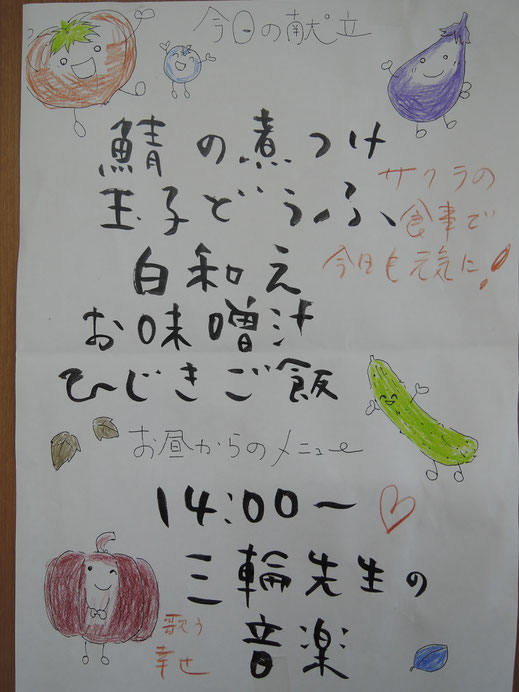 今日の献立
鯖の煮つけ
玉子どうふ
サクラの
食事で
今日も元気に!
白和え
お味噌汁
ひじきご飯
お昼からのメニュー
14:00〜♡
三輪先生の
音楽
歌う
幸せ